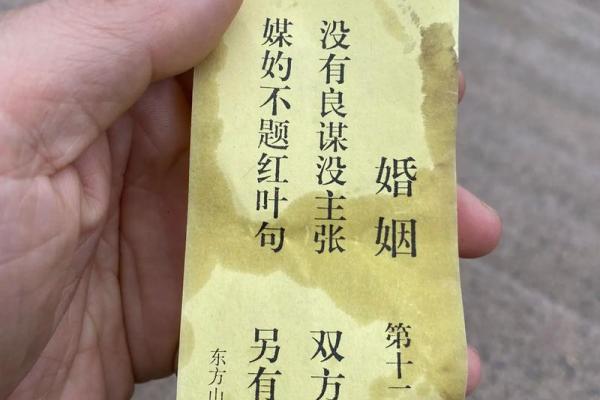 婚姻 第十
没有良谋没主张 双方
媒妁不题红叶句 另有
东方山